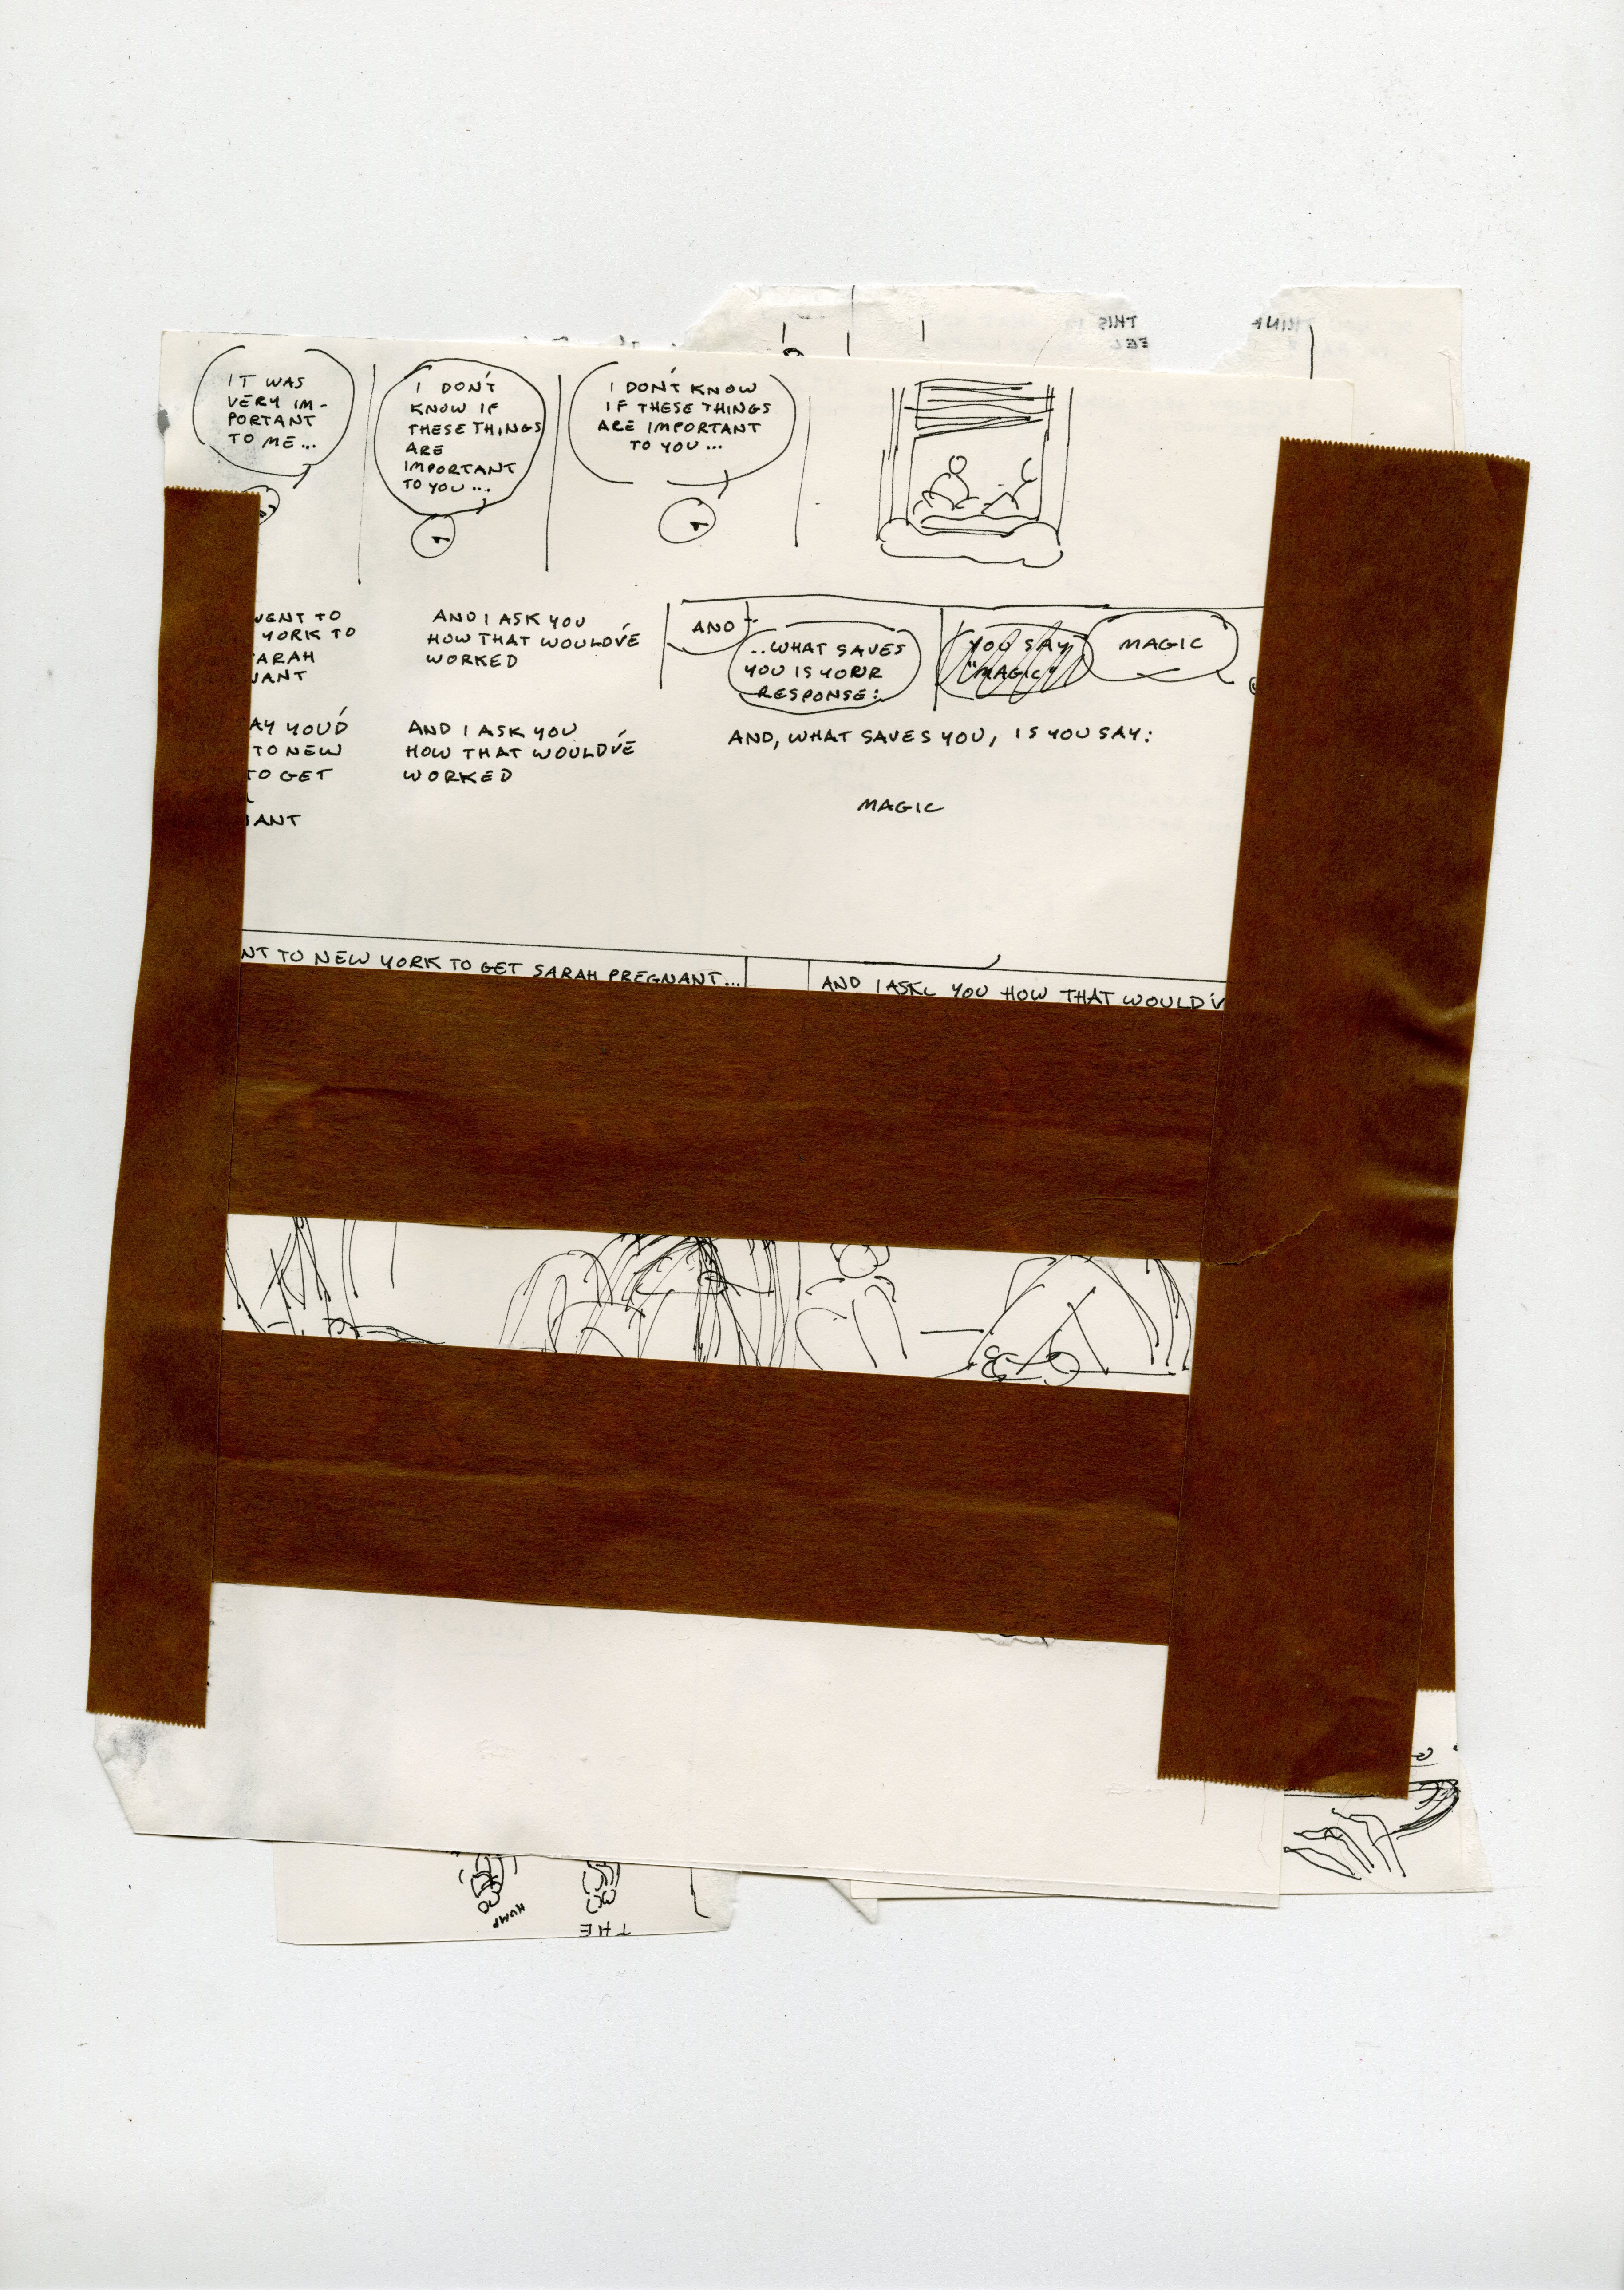 THIS
THINK
FEEL
IT WAS
VERY IM-
PORTANT
TO ME...
I DON'T
KNOW IF
THESE THINGS
ARE
IMPORTANT
TO YOU...
I DON'T KNOW
IF THESE THINGS
ARE IMPORTANT
TO YOU...
WENT TO
YORK TO
ARAH
NANT
AND I ASK YOU
HOW THAT WOULD'VE
WORKED
AND
..WHAT SAVES
YOU IS YOUR
RESPONSE:
YOU SAY
"MAGIC"
MAGIC
AY YOU'D
TO NEW
TO GET
NANT
AND I ASK YOU
HOW THAT WOULD'VE
WORKED
AND, WHAT SAVES YOU, IS YOU SAY:
MAGIC
NT TO NEW YORK TO GET SARAH PREGNANT...
AND I ASK YOU HOW THAT WOULD'V
HUMP
THE